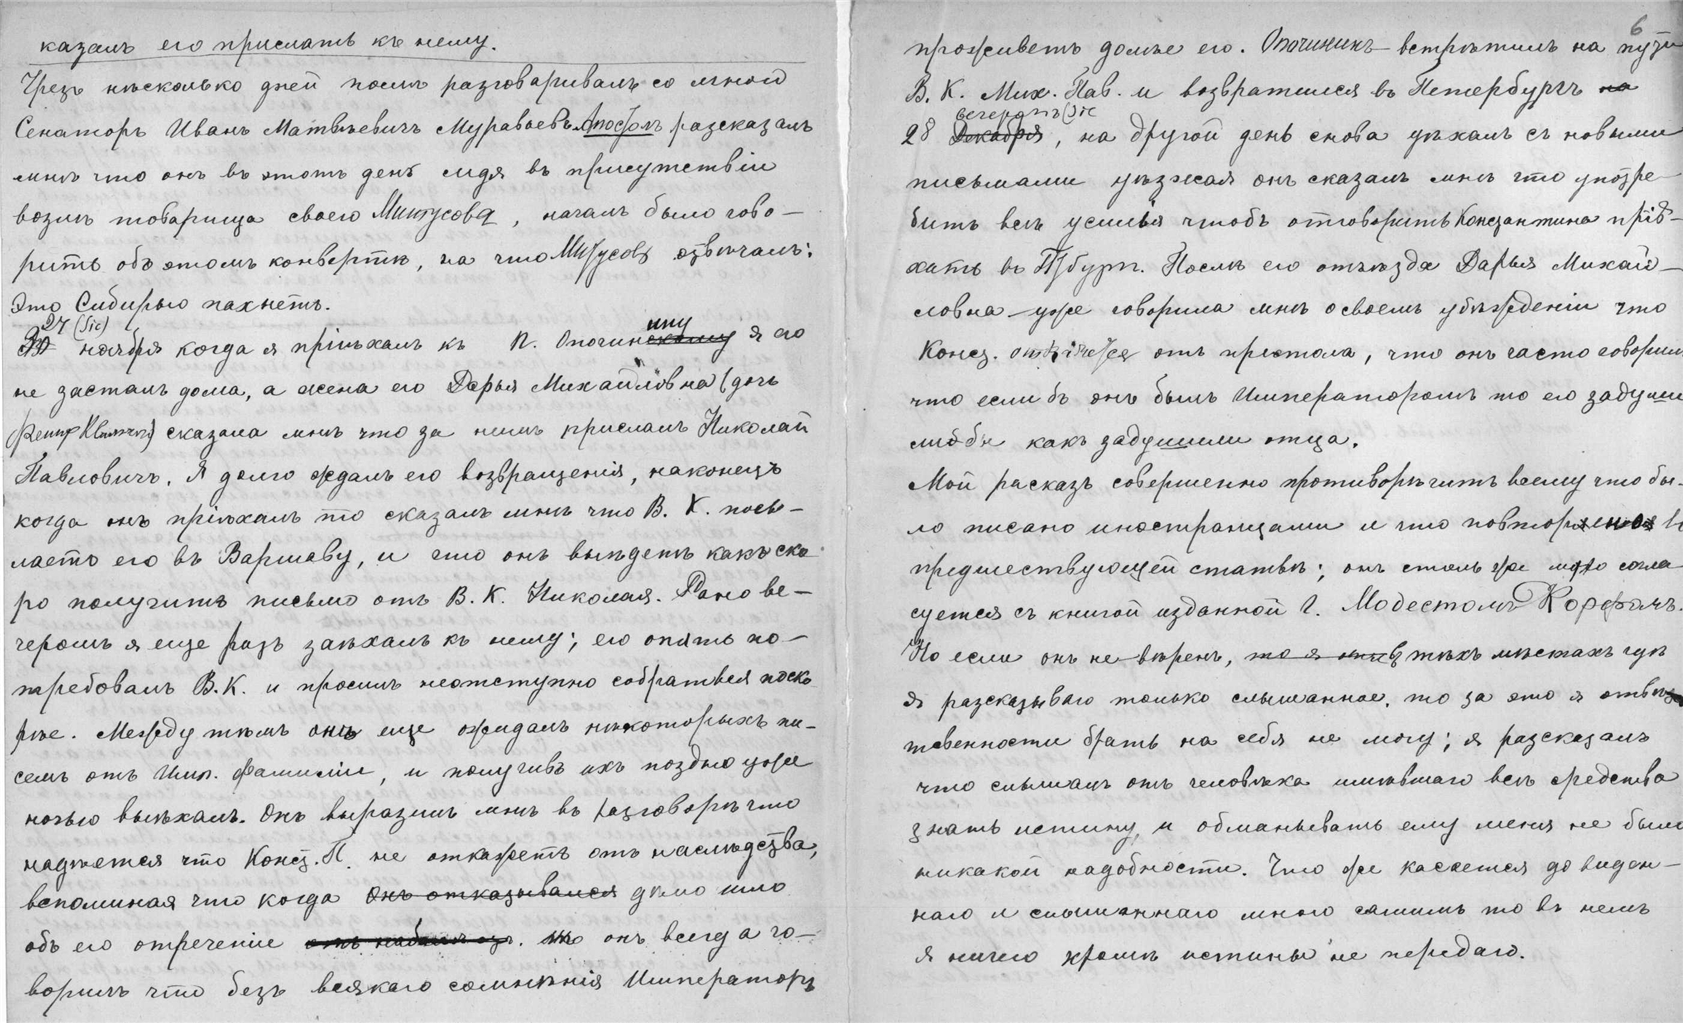 казалъ его прислать къ нему.
Чрезъ нѣсколько дней послѣ разговаривалъ со мной
Сенаторъ Иванъ Матвѣевичъ Муравьевъ-Апостолъ разсказалъ
мнѣ что онъ въ этотъ день сидя въ присутствіи
возлѣ товарища своего Митусова, началъ было гово-
рить объ этомъ конвертѣ, на что Митусовъ отвѣчалъ:
Это Сибирью пахнетъ.
27 (sic)
ину
ноября когда я пріѣхалъ къ П. Опочинскому я его
не засталъ дома, а жена его Дарья Михайловна (дочь
сказала мнѣ что за нимъ прислалъ Николай
Павловичъ. Я долго ждалъ его возвращенія, наконецъ
когда онъ пріѣхалъ то сказалъ мнѣ что В. К. посы-
лаетъ его въ Варшаву, и что онъ выѣдетъ какъ ско
ро получитъ письмо отъ В. К. Николая. Рано ве-
черомъ я еще разъ заѣхалъ къ нему; его опять по-
требовалъ В. К. и просилъ неотступно собраться поско
рѣе. Между тѣмъ онъ еще ожидалъ нѣкоторыхъ пи-
семъ отъ Имп. фамиліи, и получивъ ихъ поздно уже
ночью выѣхалъ. Онъ выразилъ мнѣ въ разговорѣ что
надѣется что Конст. П. не откажетъ отъ наслѣдства,
вспоминая что когда онъ отказывался дѣло шло
объ его отреченіе то онъ всегда го-
ворилъ что безъ всякаго сомнѣнія Императоръ
6
проживетъ долѣе его. Опочининъ встрѣтилъ на пути
В. К. Мих. Пав. и возвратился въ Петербургъ на
вечеромъ (sic
28 Декабря, на другой день снова уѣхалъ съ новыми
письмами уѣзжая онъ сказалъ мнѣ что употре-
битъ всѣ усилья чтобъ отговорить Константина пріѣ-
хать въ Птбургъ. Послѣ его отъѣзда Дарья Михай-
ловна уже говорила мнѣ о своемъ убѣжденіи что
Конст. откажется отъ престола, что онъ часто говорилъ
что если бъ онъ былъ Императоромъ то его задуши
ли бы какъ задушили отца.
Мой расказъ совершенно противорѣчитъ всему что бы-
ло писано иностранцами и что повторяется въ
предшествующей статьѣ; онъ столь же мало согла
суется съ книгой изданной Г. Модестомъ Корфомъ.
Но если онъ не вѣренъ, то я въ тѣхъ мѣстахъ гдѣ
я разсказываю только слышанное, то за это я отвѣт
ственности брать на себя не могу; я разсказалъ
что слышалъ отъ человѣка имѣвшаго всѣ средства
знать истину и обманывать ему меня не было
никакой надобности. Что же касается до виден-
наго и слышаннаго мною самимъ то въ немъ
я ничего кромѣ истины не передаю.